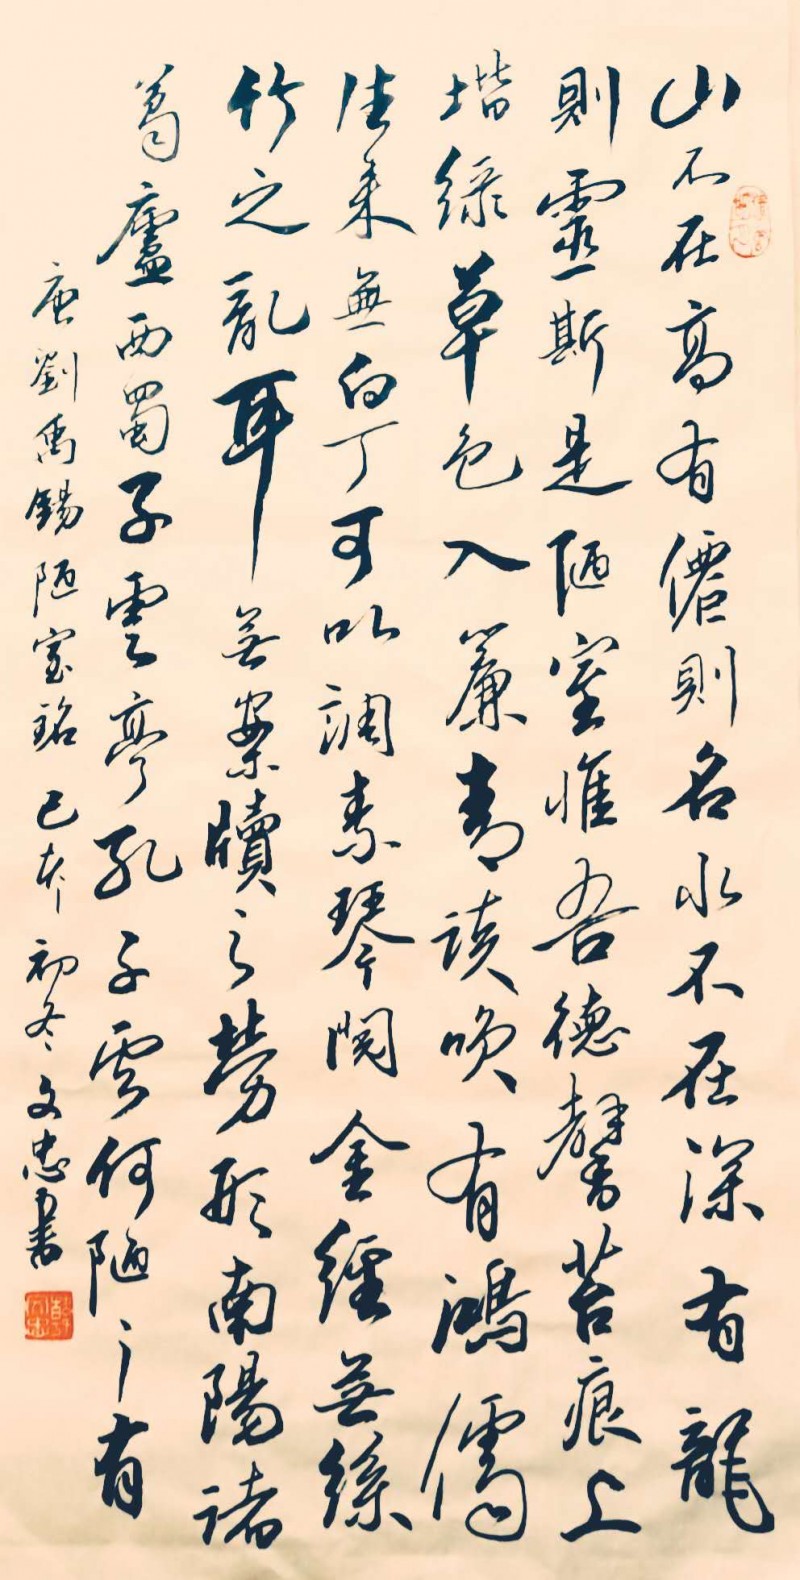 山不在高有僊則名水不在深有龍
則靈斯是陋室惟吾德馨苔痕上
堦綠草色入簾青談咲有鴻儒
往来無白丁可以調素琴閱金經無絲
竹之亂耳無案牘之勞形南陽諸
葛廬西蜀子雲亭孔子云何陋之有
唐劉禹錫陋室銘己亥初冬文忠書